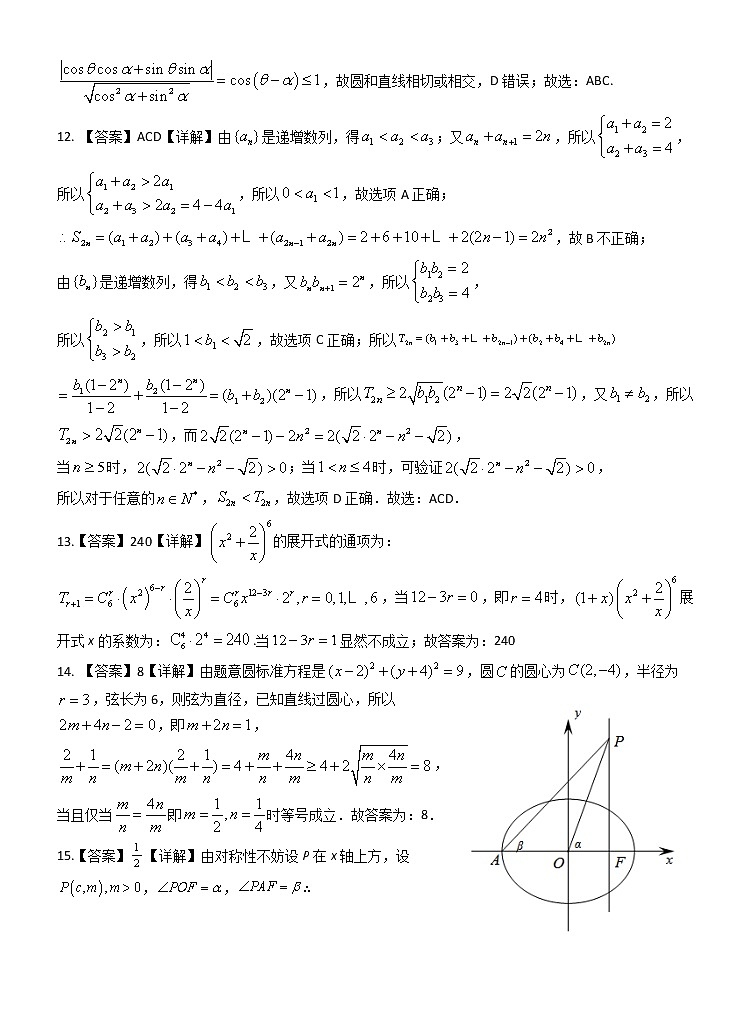 |cosθcosα+sinθsinα| / √(cos²α+sin²α) = cos(θ−α)≤1，故圆和直线相切或相交，D 错误；故选：ABC.
12. 【答案】ACD【详解】由{aₙ}是递增数列，得a₁<a₂<a₃；又aₙ+aₙ₊₁=2n，所以{a₁+a₂=2 a₂+a₃=4，
所以{a₁+a₂>2a₁ a₂+a₃>2a₂=4−4a₁，所以0<a₁<1，故选项 A 正确；
∴S₂ₙ=(a₁+a₂)+(a₃+a₄)+L +(a₂ₙ₋₁+a₂ₙ)=2+6+10+L +2(2n−1)=2n²，故 B 不正确；
由{bₙ}是递增数列，得b₁<b₂<b₃，又bₙbₙ₊₁=2ⁿ，所以{b₁b₂=2 b₂b₃=4，
所以{b₂>b₁ b₃>b₂，所以1<b₁<√2，故选项 C 正确；所以T₂ₙ=(b₁+b₃+L +b₂ₙ₋₁)+(b₂+b₄+L +b₂ₙ)
=b₁(1−2ⁿ)/(1−2)+b₂(1−2ⁿ)/(1−2)=(b₁+b₂)(2ⁿ−1)，所以T₂ₙ≥2√(b₁b₂)(2ⁿ−1)=2√2(2ⁿ−1)，又b₁≠b₂，所以
T₂ₙ>2√2(2ⁿ−1)，而2√2(2ⁿ−1)−2n²=2(√2·2ⁿ−n²−√2)，
当n≥5时，2(√2·2ⁿ−n²−√2)>0；当1<n≤4时，可验证2(√2·2ⁿ−n²−√2)>0，
所以对于任意的n∈N*，S₂ₙ<T₂ₙ，故选项 D 正确．故选：ACD．
13.【答案】240【详解】(x²+2/x)⁶的展开式的通项为：
Tᵣ₊₁=C₆ʳ·(x²)⁶⁻ʳ·(2/x)ʳ=C₆ʳx¹²⁻³ʳ·2ʳ,r=0,1,L ,6，当12−3r=0，即r=4时，(1+x)(x²+2/x)⁶展
开式 x 的系数为：C₆⁴·2⁴=240.当12−3r=1显然不成立；故答案为：240
14. 【答案】8【详解】由题意圆标准方程是(x−2)²+(y+4)²=9，圆C的圆心为C(2,−4)，半径为
r=3，弦长为 6，则弦为直径，已知直线过圆心，所以
2m+4n−2=0，即m+2n=1，
2/m+1/n=(m+2n)(2/m+1/n)=4+m/n+4n/m≥4+2√(m/n×4n/m)=8，
当且仅当m/n=4n/m即m=1/2,n=1/4时等号成立．故答案为：8．
15.【答案】1/2【详解】由对称性不妨设 P 在 x 轴上方，设
P(c,m),m>0，∠POF=α，∠PAF=β∴
y
P
A
β
O
α
F
x